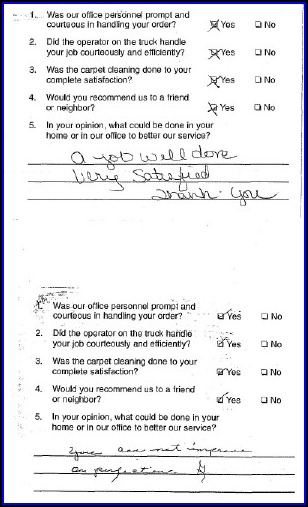 1. Was our office personnel prompt and
courteous in handling your order? Yes No
2. Did the operator on the truck handle
your job courteously and efficiently? Yes No
3. Was the carpet cleaning done to your
complete satisfaction? Yes No
4. Would you recommend us to a friend
or neighbor? Yes No
5. In your opinion, what could be done in your
home or in our office to better our service?
A job well done
Very Satisfied
Thank You
1. Was our office personnel prompt and
courteous in handling your order? Yes No
2. Did the operator on the truck handle
your job courteously and efficiently? Yes No
3. Was the carpet cleaning done to your
complete satisfaction? Yes No
4. Would you recommend us to a friend
or neighbor? Yes No
5. In your opinion, what could be done in your
home or in our office to better our service?
not improve
on perfection